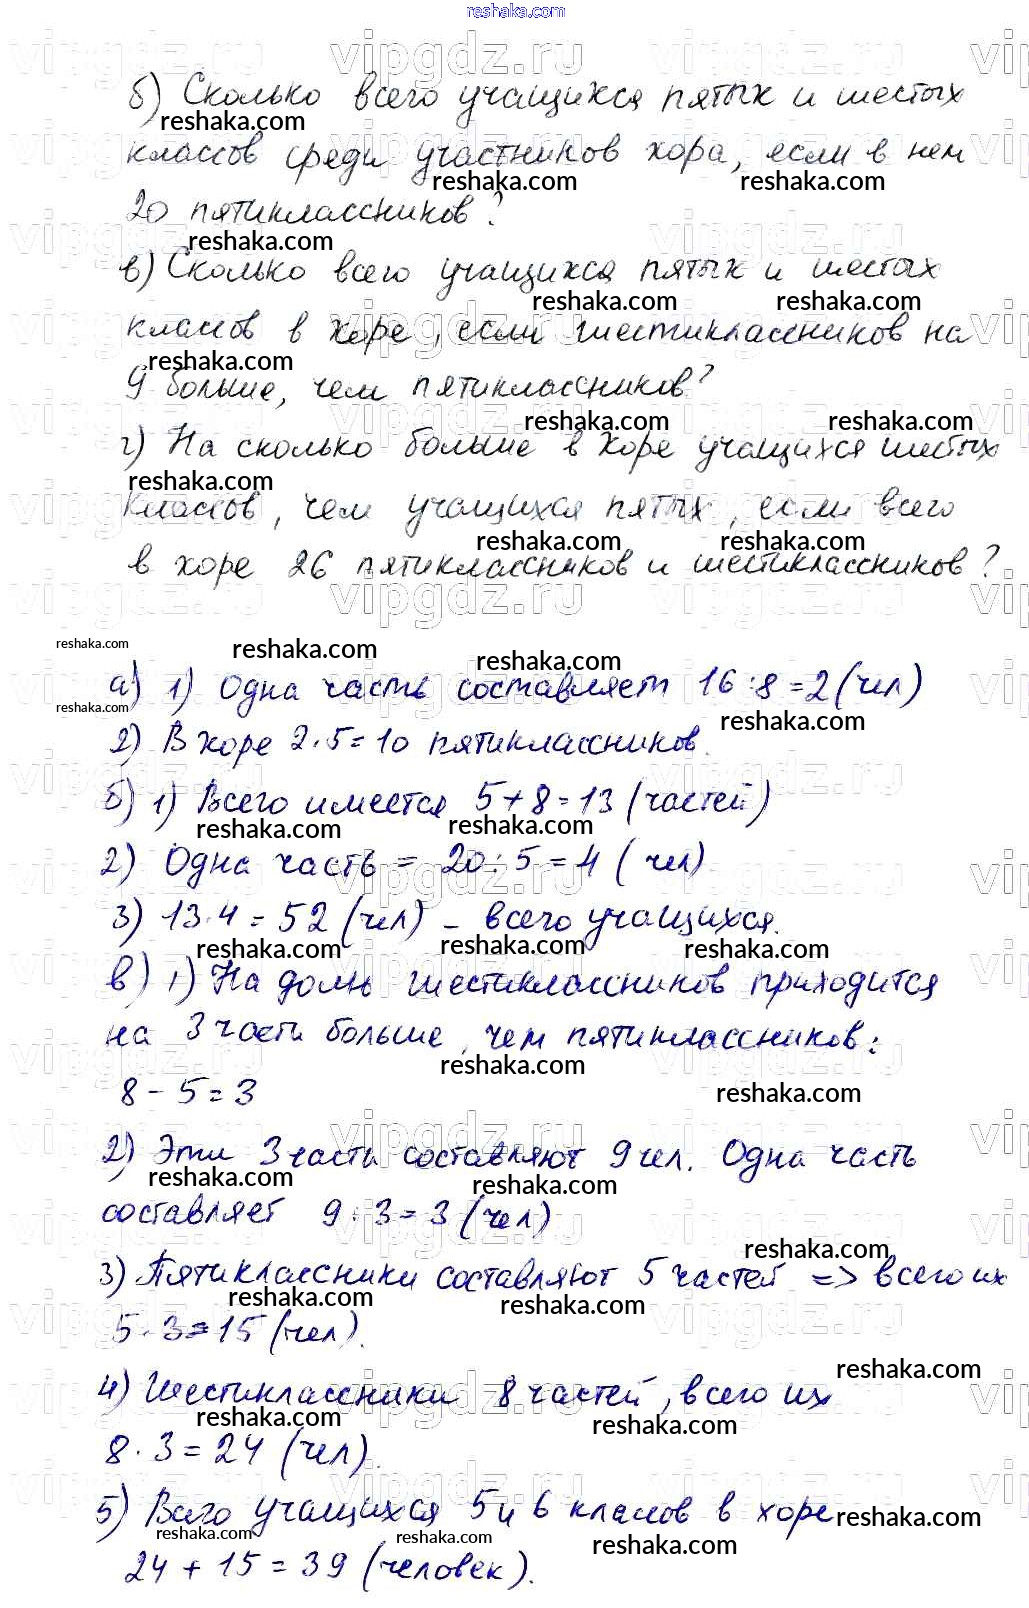 reshaka.com
б) Сколько всего учащихся пятых и шестых
классов среди участников хора, если в нем
20 пятиклассников?
в) Сколько всего учащихся пятых и шестых
классов в хоре, если шестиклассников на
9 больше, чем пятиклассников?
г) На сколько больше в хоре учащихся шестых
классов, чем учащихся пятых, если всего
в хоре 26 пятиклассников и шестиклассников?
а) 1) Одна часть составляет 16:8=2 (чел)
2) В хоре 2·5=10 пятиклассников.
б) 1) Всего имеется 5+8=13 (частей)
2) Одна часть = 20:5=4 (чел)
3) 13·4=52 (чел) – всего учащихся.
в) 1) На долю шестиклассников приходится
на 3 части больше, чем пятиклассников:
8-5=3
2) Эти 3 части составляют 9 чел. Одна часть
составляет 9:3=3 (чел)
3) Пятиклассники составляют 5 частей => всего их
5·3=15 (чел).
4) Шестиклассники 8 частей, всего их
8·3=24 (чел).
5) Всего учащихся 5 и 6 классов в хоре
24+15=39 (человек).